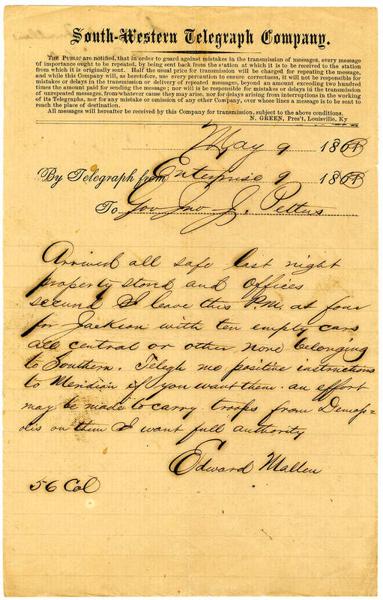 South-Western Telegraph Company.
THE PUBLIC are notified, that in order to guard against mistakes in the transmission of messages, every message
of importance ought to be repeated, by being sent back from the station at which it is to be received to the station
from which it is originally sent. Half the usual price for transmission will be charged for repeating the message,
and while this Company will, as heretofore, use every precaution to ensure correctness, it will not be responsible for
mistakes or delays in the transmission or delivery of repeated messages, beyond an amount exceeding two hundred
times the amount paid for sending the message; nor will it be responsible for mistakes or delays in the transmission
of unrepeated messages, from whatever cause they may arise, nor for delays arising from interruptions in the working
of its Telegraphs, nor for any mistake or omission of any other Company, over whose lines a message is to be sent to
reach the place of destination.
All messages will hereafter be received by this Company for transmission, subject to the above conditions.
N. GREEN, Pres't, Louisville, Ky
May 9 186
By Telegraph from Enterprise 9 186
To Gov Jno J. Pettus
Arrived all safe last night
property stored and offices
secured I leave this P.M. at four
for Jackson with ten empty cars
all central or other none belonging
to Southern. Telegh me positive instructions
to Meridian if you want them. an effort
may be made to carry troops from Demop=
olis on them I want full authority
Edward Mallen
56 Col